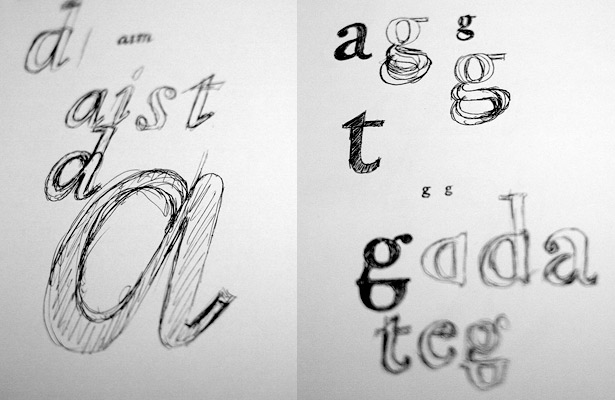 d
aim
aist
d
a
a g g
g
t
g g
gada
teg